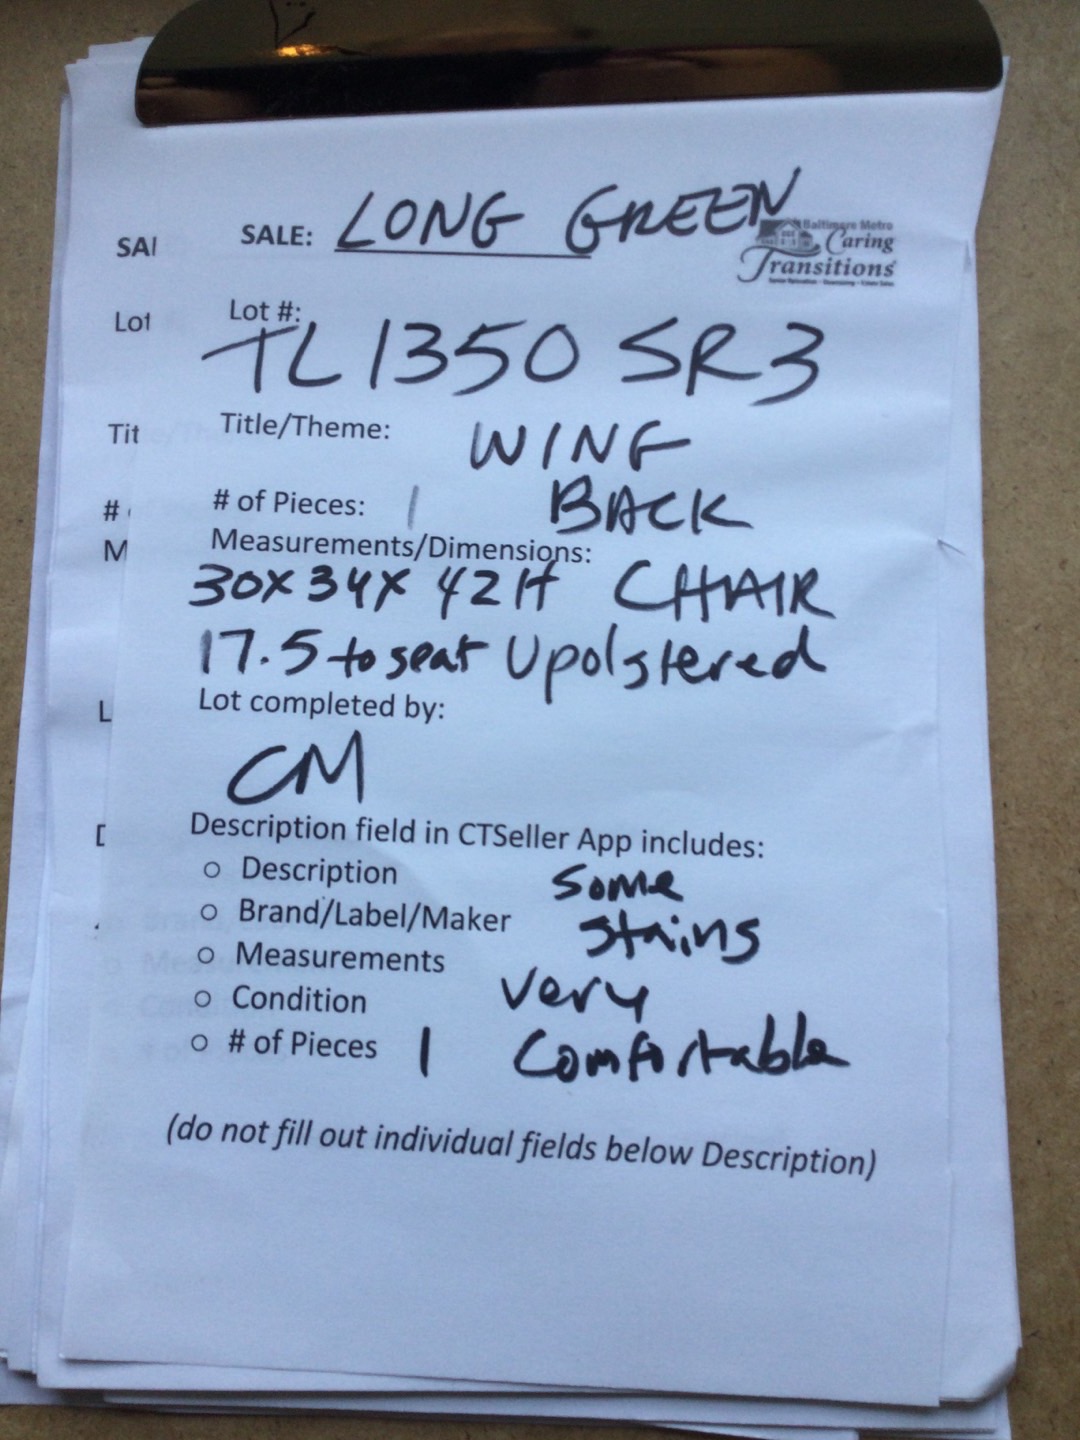 SALE: LONG GREEN
Baltimore Metro
Caring
Transitions
Lot #:
TL1350 SR3
Title/Theme: WING
# of Pieces: 1 BACK
Measurements/Dimensions:
30x34x 42H CHAIR
17.5 to seat Upolstered
Lot completed by:
CM
Description field in CTSeller App includes:
○ Description some
○ Brand/Label/Maker stains
○ Measurements
○ Condition very
○ # of Pieces 1 Comfortable
(do not fill out individual fields below Description)